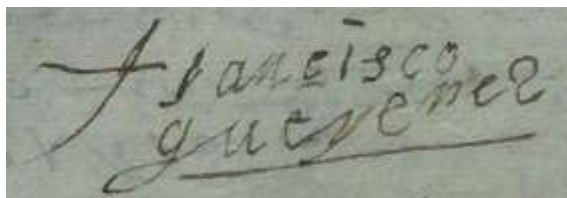 francisco
guerener